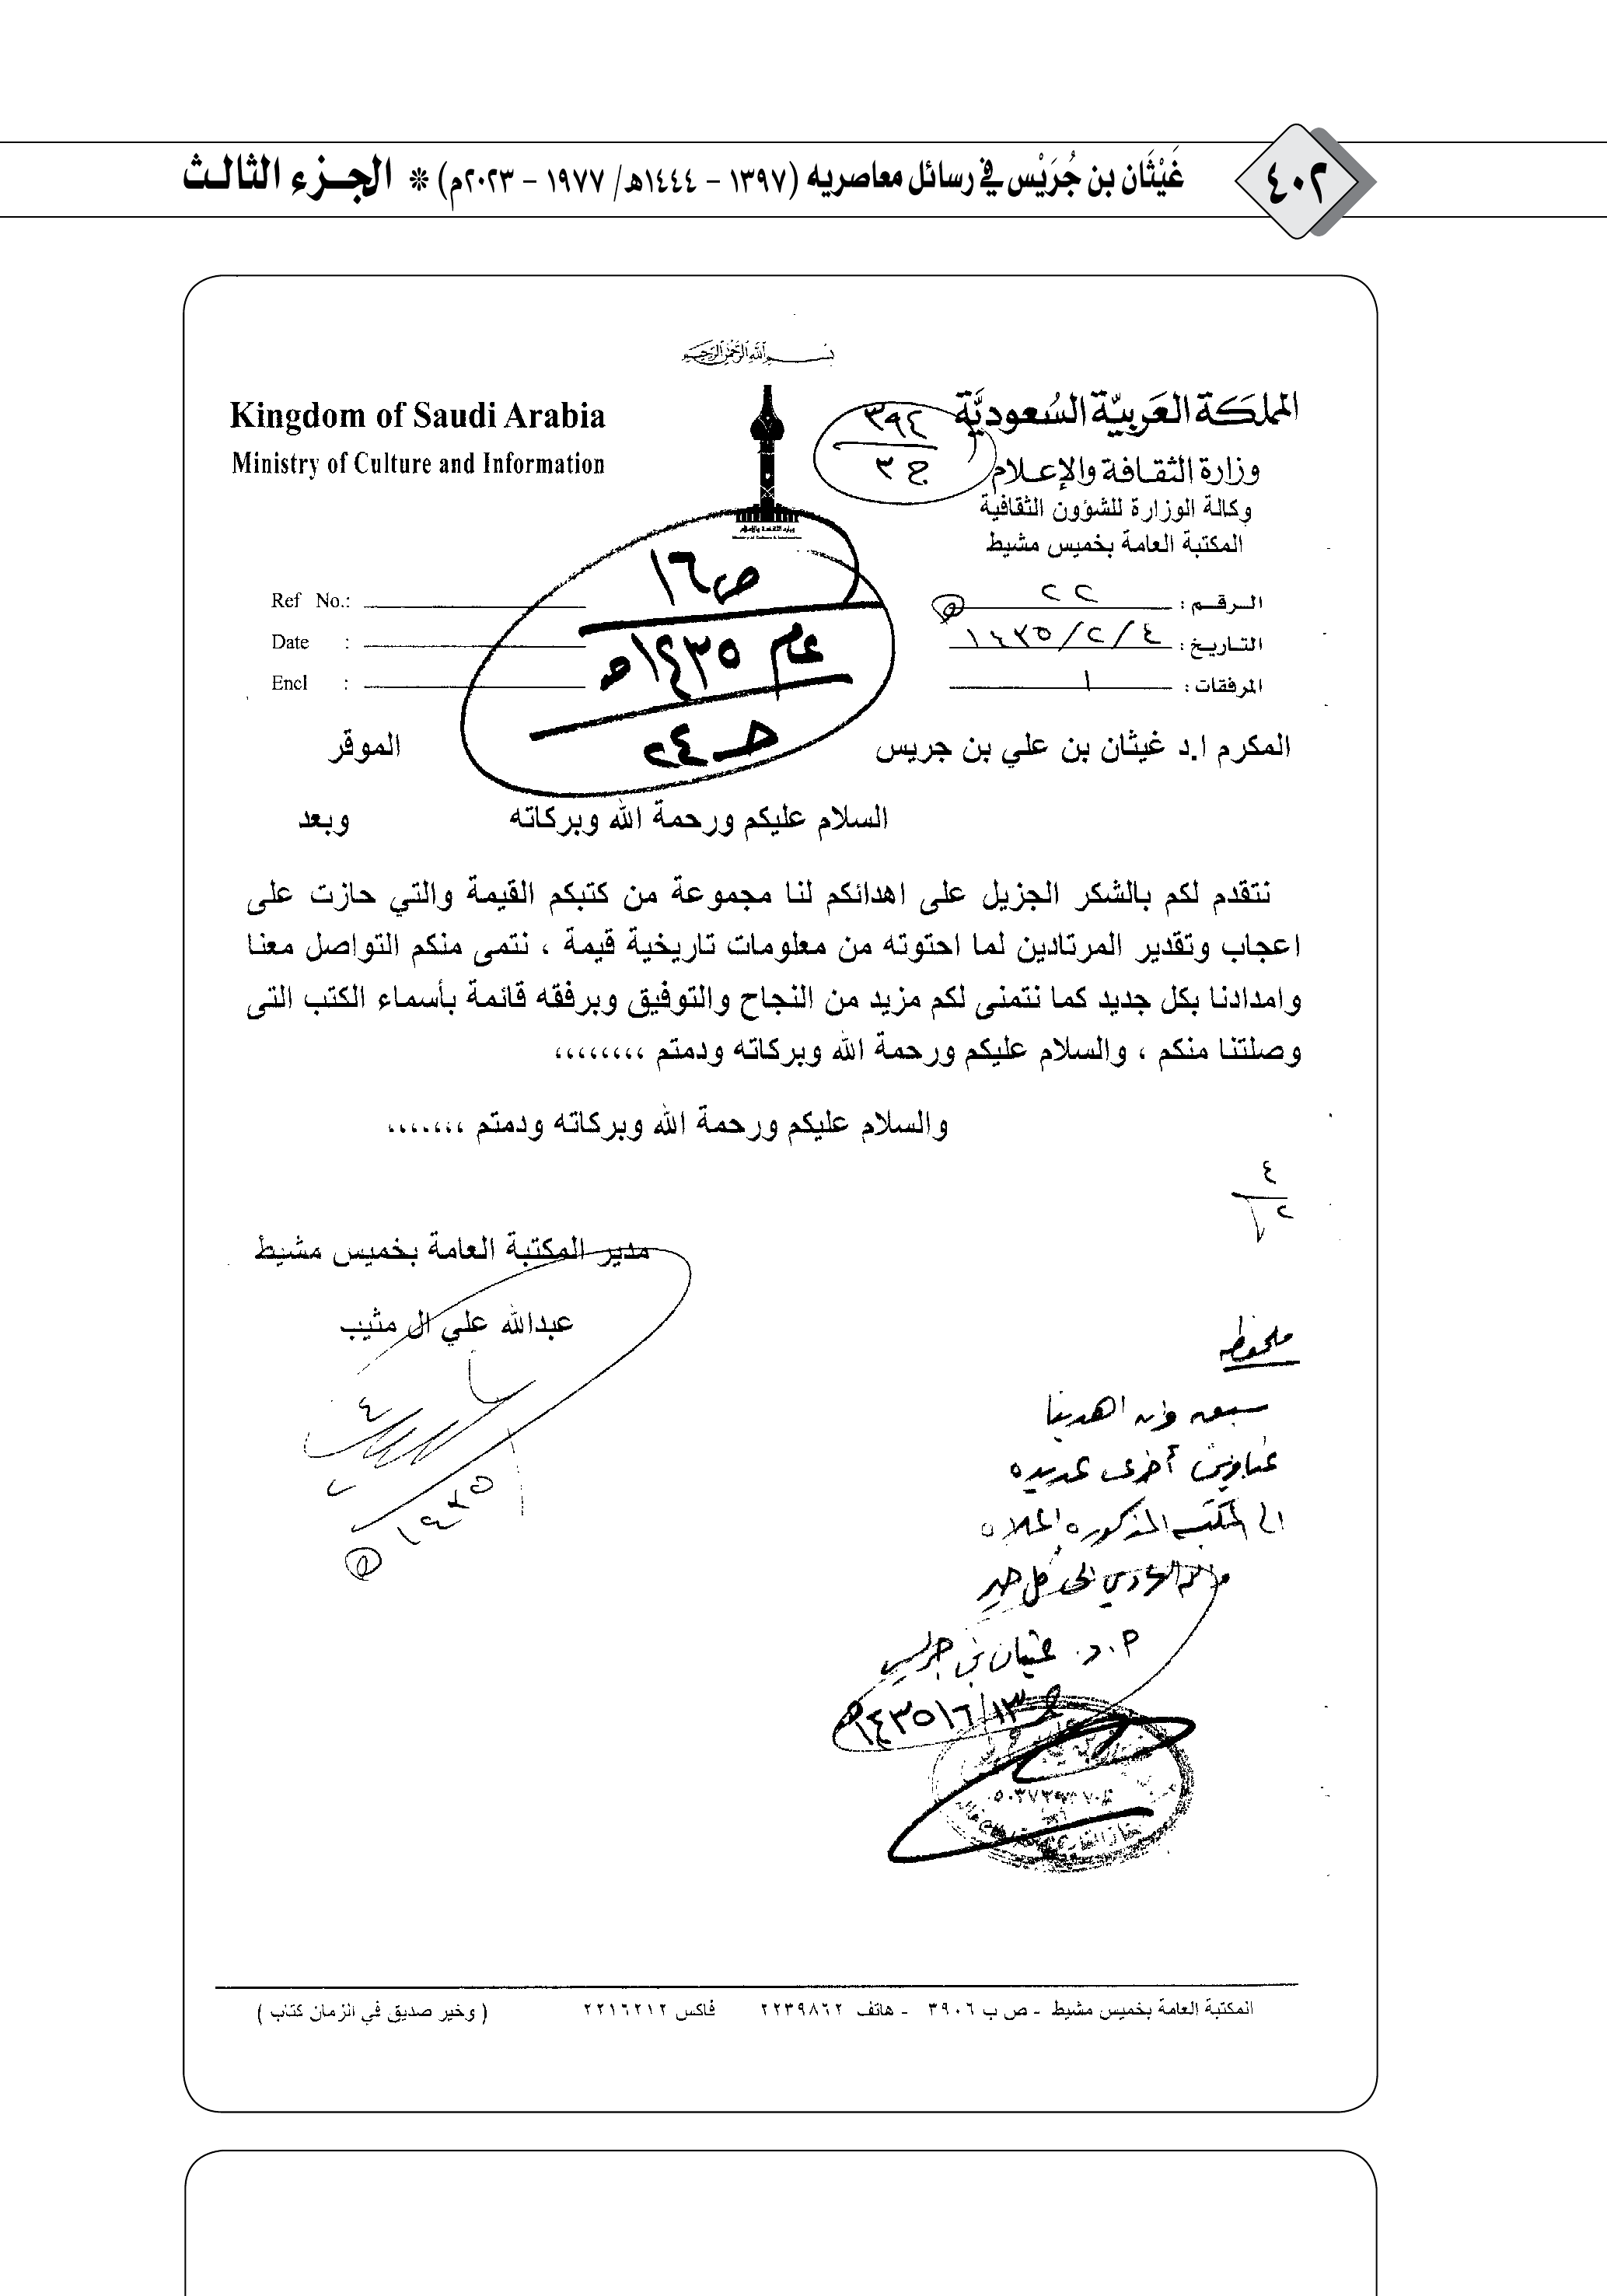 ٤٠٢
غَيْثَان بن جُرَيْس في رسائل معاصريه (١٣٩٧ - ١٤٤٤هـ/ ١٩٧٧ - ٢٠٢٣م) * الجزء الثالث
بسم الله الرحمن الرحيم
المملكة العربية السعودية
وزارة الثقافة والإعلام
وكالة الوزارة للشؤون الثقافية
المكتبة العامة بخميس مشيط
Kingdom of Saudi Arabia
Ministry of Culture and Information
٣٩٤
ج ٣
وزارة الثقافة والإعلام
Ministry of Culture & Information
الرقم : ٢٢
التاريخ : ٤ / ٢ / ١٤٣٥
المرفقات : ١
Ref No.:
Date :
Encl :
ص ١٦
عام ١٤٣٥هـ
حـ ٢٤
المكرم ا.د غيثان بن علي بن جريس الموقر
السلام عليكم ورحمة الله وبركاته وبعد
نتقدم لكم بالشكر الجزيل على اهدائكم لنا مجموعة من كتبكم القيمة والتي حازت على
اعجاب وتقدير المرتادين لما احتوته من معلومات تاريخية قيمة ، نتمى منكم التواصل معنا
وامدادنا بكل جديد كما نتمنى لكم مزيد من النجاح والتوفيق وبرفقه قائمة بأسماء الكتب التى
وصلتنا منكم ، والسلام عليكم ورحمة الله وبركاته ودمتم ،،،،،،،،
والسلام عليكم ورحمة الله وبركاته ودمتم ،،،،،،،
٤
٢
مدير المكتبة العامة بخميس مشيط
عبدالله علي ال مثيب
٤
١٤٣٥
ملحوظه
سبق وان اهدينا
عناوين أخرى عديده
الى المكتبه المذكوره اعلاه
والله الهادي الى كل خير
أ.د. غيثان بن جريس
١٤٣٥/٦/١٣هـ
المكتبة العامة بخميس مشيط - ص ب ٣٩٠٦ - هاتف ٢٢٣٩٨٦٢ فاكس ٢٢١٦٢١٢ ( وخير صديق في الزمان كتاب )